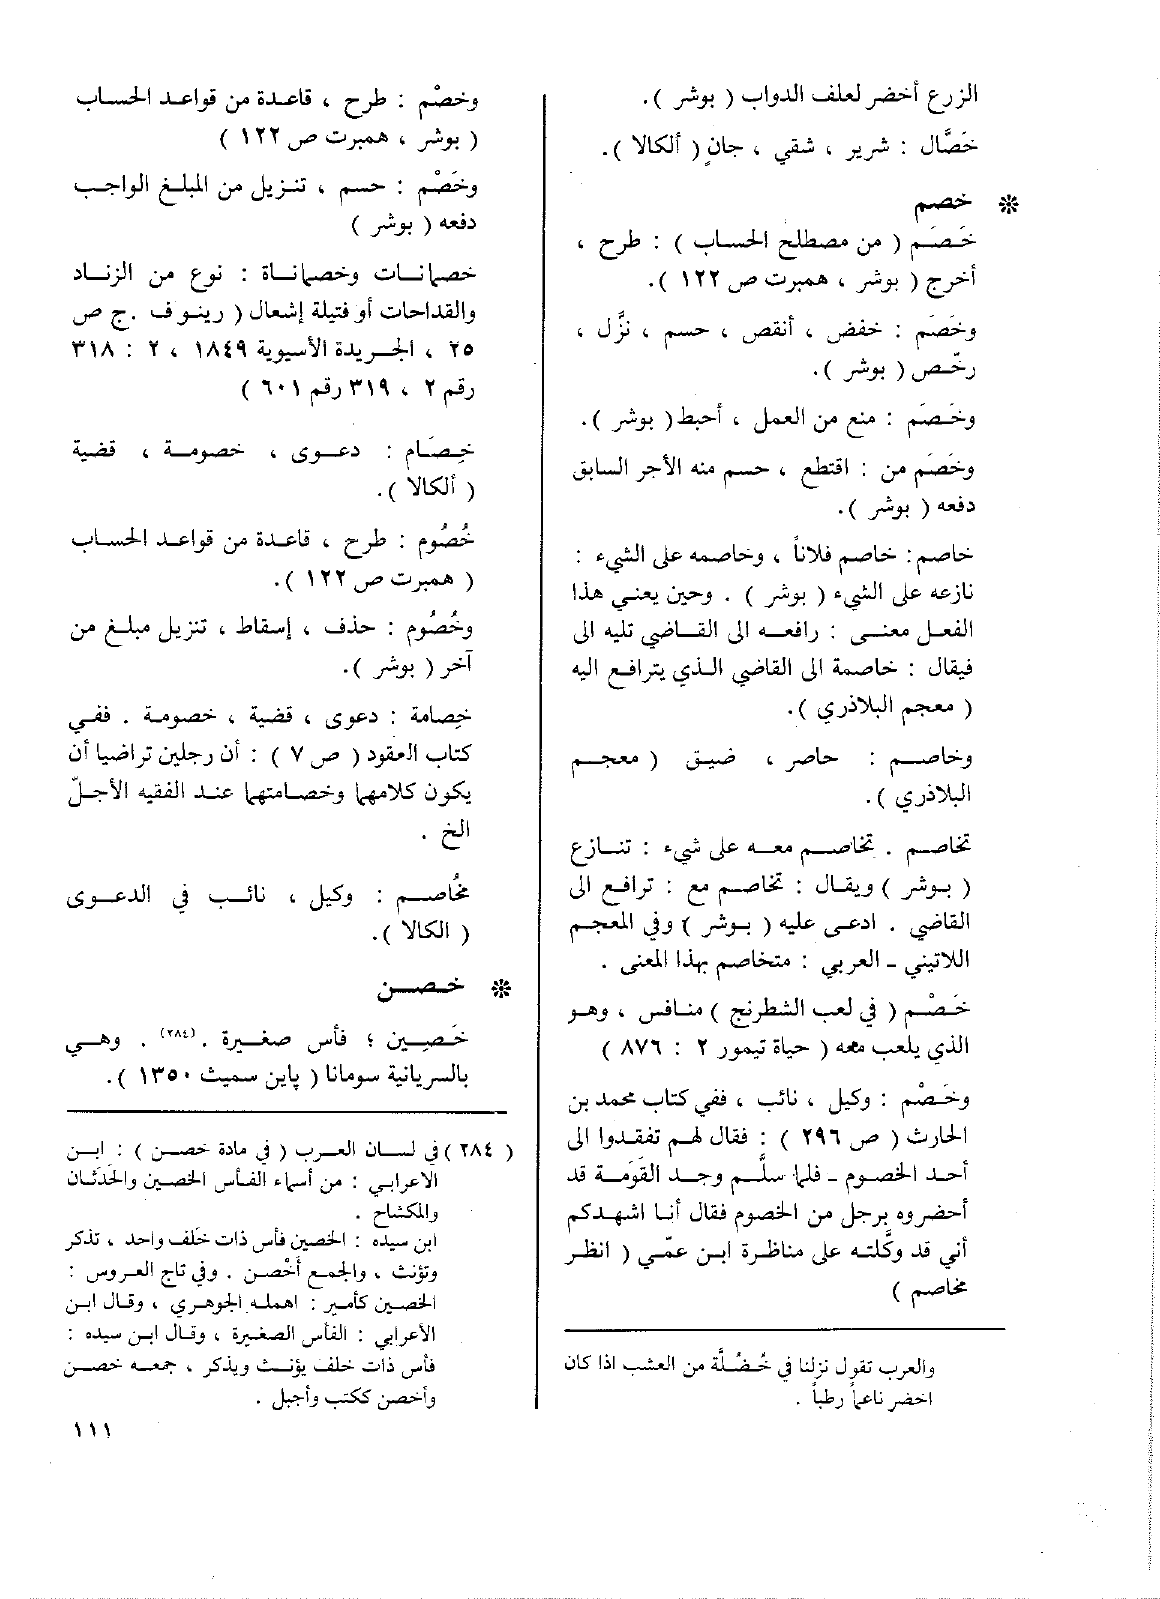 الزرع أخضر لعلف الدواب ( بوشر ).
خَصَّال : شرير ، شقي ، جانٍ ( ألكالا ).
❊ خصم
خَصَم ( من مصطلح الحساب ) : طرح ،
أخرج ( بوشر ، همبرت ص ١٢٢ ).
وخَصَم : خفض ، أنقص ، حسم ، نزَّل ،
رخّص ( بوشر ).
وخَصَم : منع من العمل ، أحبط ( بوشر ).
وخَصَم من : اقتطع ، حسم منه الأجر السابق
دفعه ( بوشر ).
خاصم : خاصم فلاناً ، وخاصمه على الشيء :
نازعه على الشيء ( بوشر ) . وحين يعني هذا
الفعل معنى : رافعه الى القاضي تليه الى
فيقال : خاصمة الى القاضي الذي يترافع اليه
( معجم البلاذري ).
وخاصم : حاصر ، ضيق ( معجم
البلاذري ).
تخاصم . تخاصم معه على شيء : تنازع
( بوشر ) ويقال : تخاصم مع : ترافع الى
القاضي . ادعى عليه ( بوشر ) وفي المعجم
اللاتيني ـ العربي : متخاصم بهذا المعنى .
خَصْم ( في لعب الشطرنج ) منافس ، وهو
الذي يلعب معه ( حياة تيمور ٢ : ٨٧٦ )
وخَصْم : وكيل ، نائب ، ففي كتاب محمد بن
الحارث ( ص ٢٩٦ ) : فقال لهم تفقدوا الى
أحد الخصوم ـ فلما سلَّم وجد القَومَة قد
أحضروه برجل من الخصوم فقال أنا اشهدكم
أني قد وكَّلته على مناظرة ابن عمّي ( انظر
مخاصم )
والعرب تقول نزلنا في خُضُلَّة من العشب اذا كان
اخضر ناعماً رطباً .
وخصْم : طرح ، قاعدة من قواعد الحساب
( بوشر ، همبرت ص ١٢٢ )
وخَصْم : حسم ، تنزيل من المبلغ الواجب
دفعه ( بوشر )
خصمانات وخصماناة : نوع من الزناد
والقداحات أو فتيلة إشعال ( رينو ف .ج ص
٢٥ ، الجريدة الأسيوية ١٨٤٩ ، ٢ : ٣١٨
رقم ٢ ، ٣١٩ رقم ٦٠١ )
خِصَام : دعوى ، خصومة ، قضية
( ألكالا ).
خُصُوم : طرح ، قاعدة من قواعد الحساب
( همبرت ص ١٢٢ ).
وخُصُوم : حذف ، إسقاط ، تنزيل مبلغ من
آخر ( بوشر ).
خِصامة : دعوى ، قضية ، خصومة . ففي
كتاب العقود ( ص ٧ ) : أن رجلين تراضيا أن
يكون كلامهما وخصامتهما عند الفقيه الأجلّ
الخ .
مخُاصم : وكيل ، نائب في الدعوى
( الكالا ).
❊ خصن
خَصِين ؛ فأس صغيرة .(٢٨٤) . وهي
بالسريانية سومانا ( پاين سميث ١٣٥٠ ).
( ٢٨٤ ) في لسان العرب ( في مادة خصن ) : ابن
الاعرابي : من أسماء الفأس الخصين والحَدَثان
والمكشاح .
ابن سيده : الخصين فأس ذات خَلف واحد ، تذكر
وتؤنث ، والجمع أخْصن . وفي تاج العروس :
الخصين كأمير : اهمله الجوهري ، وقال ابن
الأعرابي : الفأس الصغيرة ، وقال ابن سيده :
فأس ذات خلف يؤنث ويذكر ، جمعه خصن
وأخصن ككتب وأجبل .
١١١